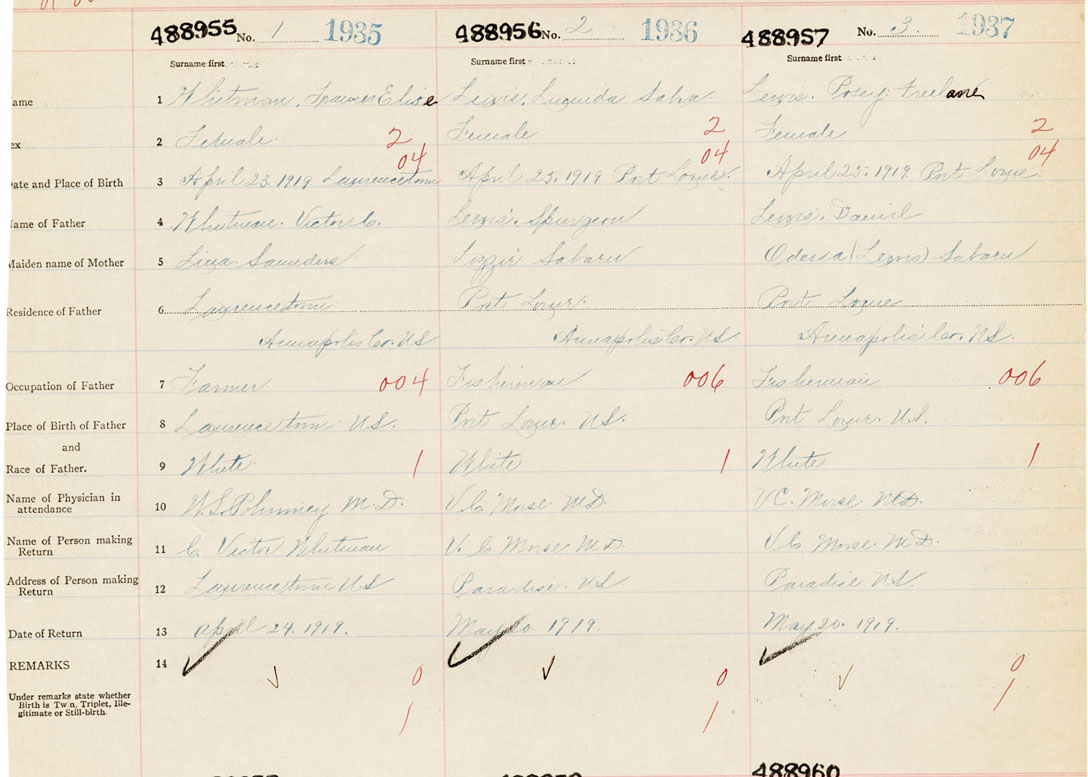 488955 No. 1 1935 488956 No. 2 1936 488957 No. 3 1937
Surname first Surname first Surname first
ame 1 Whitman, Frances Elise Lewis, Lucinda Lewis. Posey
ex 2 Female 2 Female 2 Female 2
04 04 04
ate and Place of Birth 3 April 23. 1919. Lawrencetown April 25. 1919 Port Lorne. April 25. 1919 Port Lorne.
ame of Father 4 Whitman. Victor C. Lewis. Spurgeon Lewis. Daniel
Maiden name of Mother 5 Lina Saunders Lizzie Sabean Odessa (Lewis) Sabean
Residence of Father 6 Lawrencetown Port Lorne. Port Lorne
Annapolis Co. N.S Annapolis Co. N.S Annapolis Co. N.S.
Occupation of Father 7 Farmer 004 Fisherman 006 Fisherman 006
Place of Birth of Father 8 Lawrencetown N.S. Port Lorne. N.S. Port Lorne. N.S.
and
Race of Father. 9 White 1 White 1 White 1
Name of Physician in
attendance 10 M.D. V.C. Morse M.D. V.C. Morse. M.D.
Name of Person making
Return 11 C. Victor Whitman V. C. Morse M.D. V.C. Morse. M.D.
Address of Person making
Return 12 Lawrencetown N.S Paradise. N.S Paradise N.S.
Date of Return 13 April 24. 1919. May 20. 1919. May 20. 1919.
REMARKS 14 0 0 0
Under remarks state whether
Birth is Twin, Triplet, Ille-
gitimate or Still-birth. 1 1 1
488960